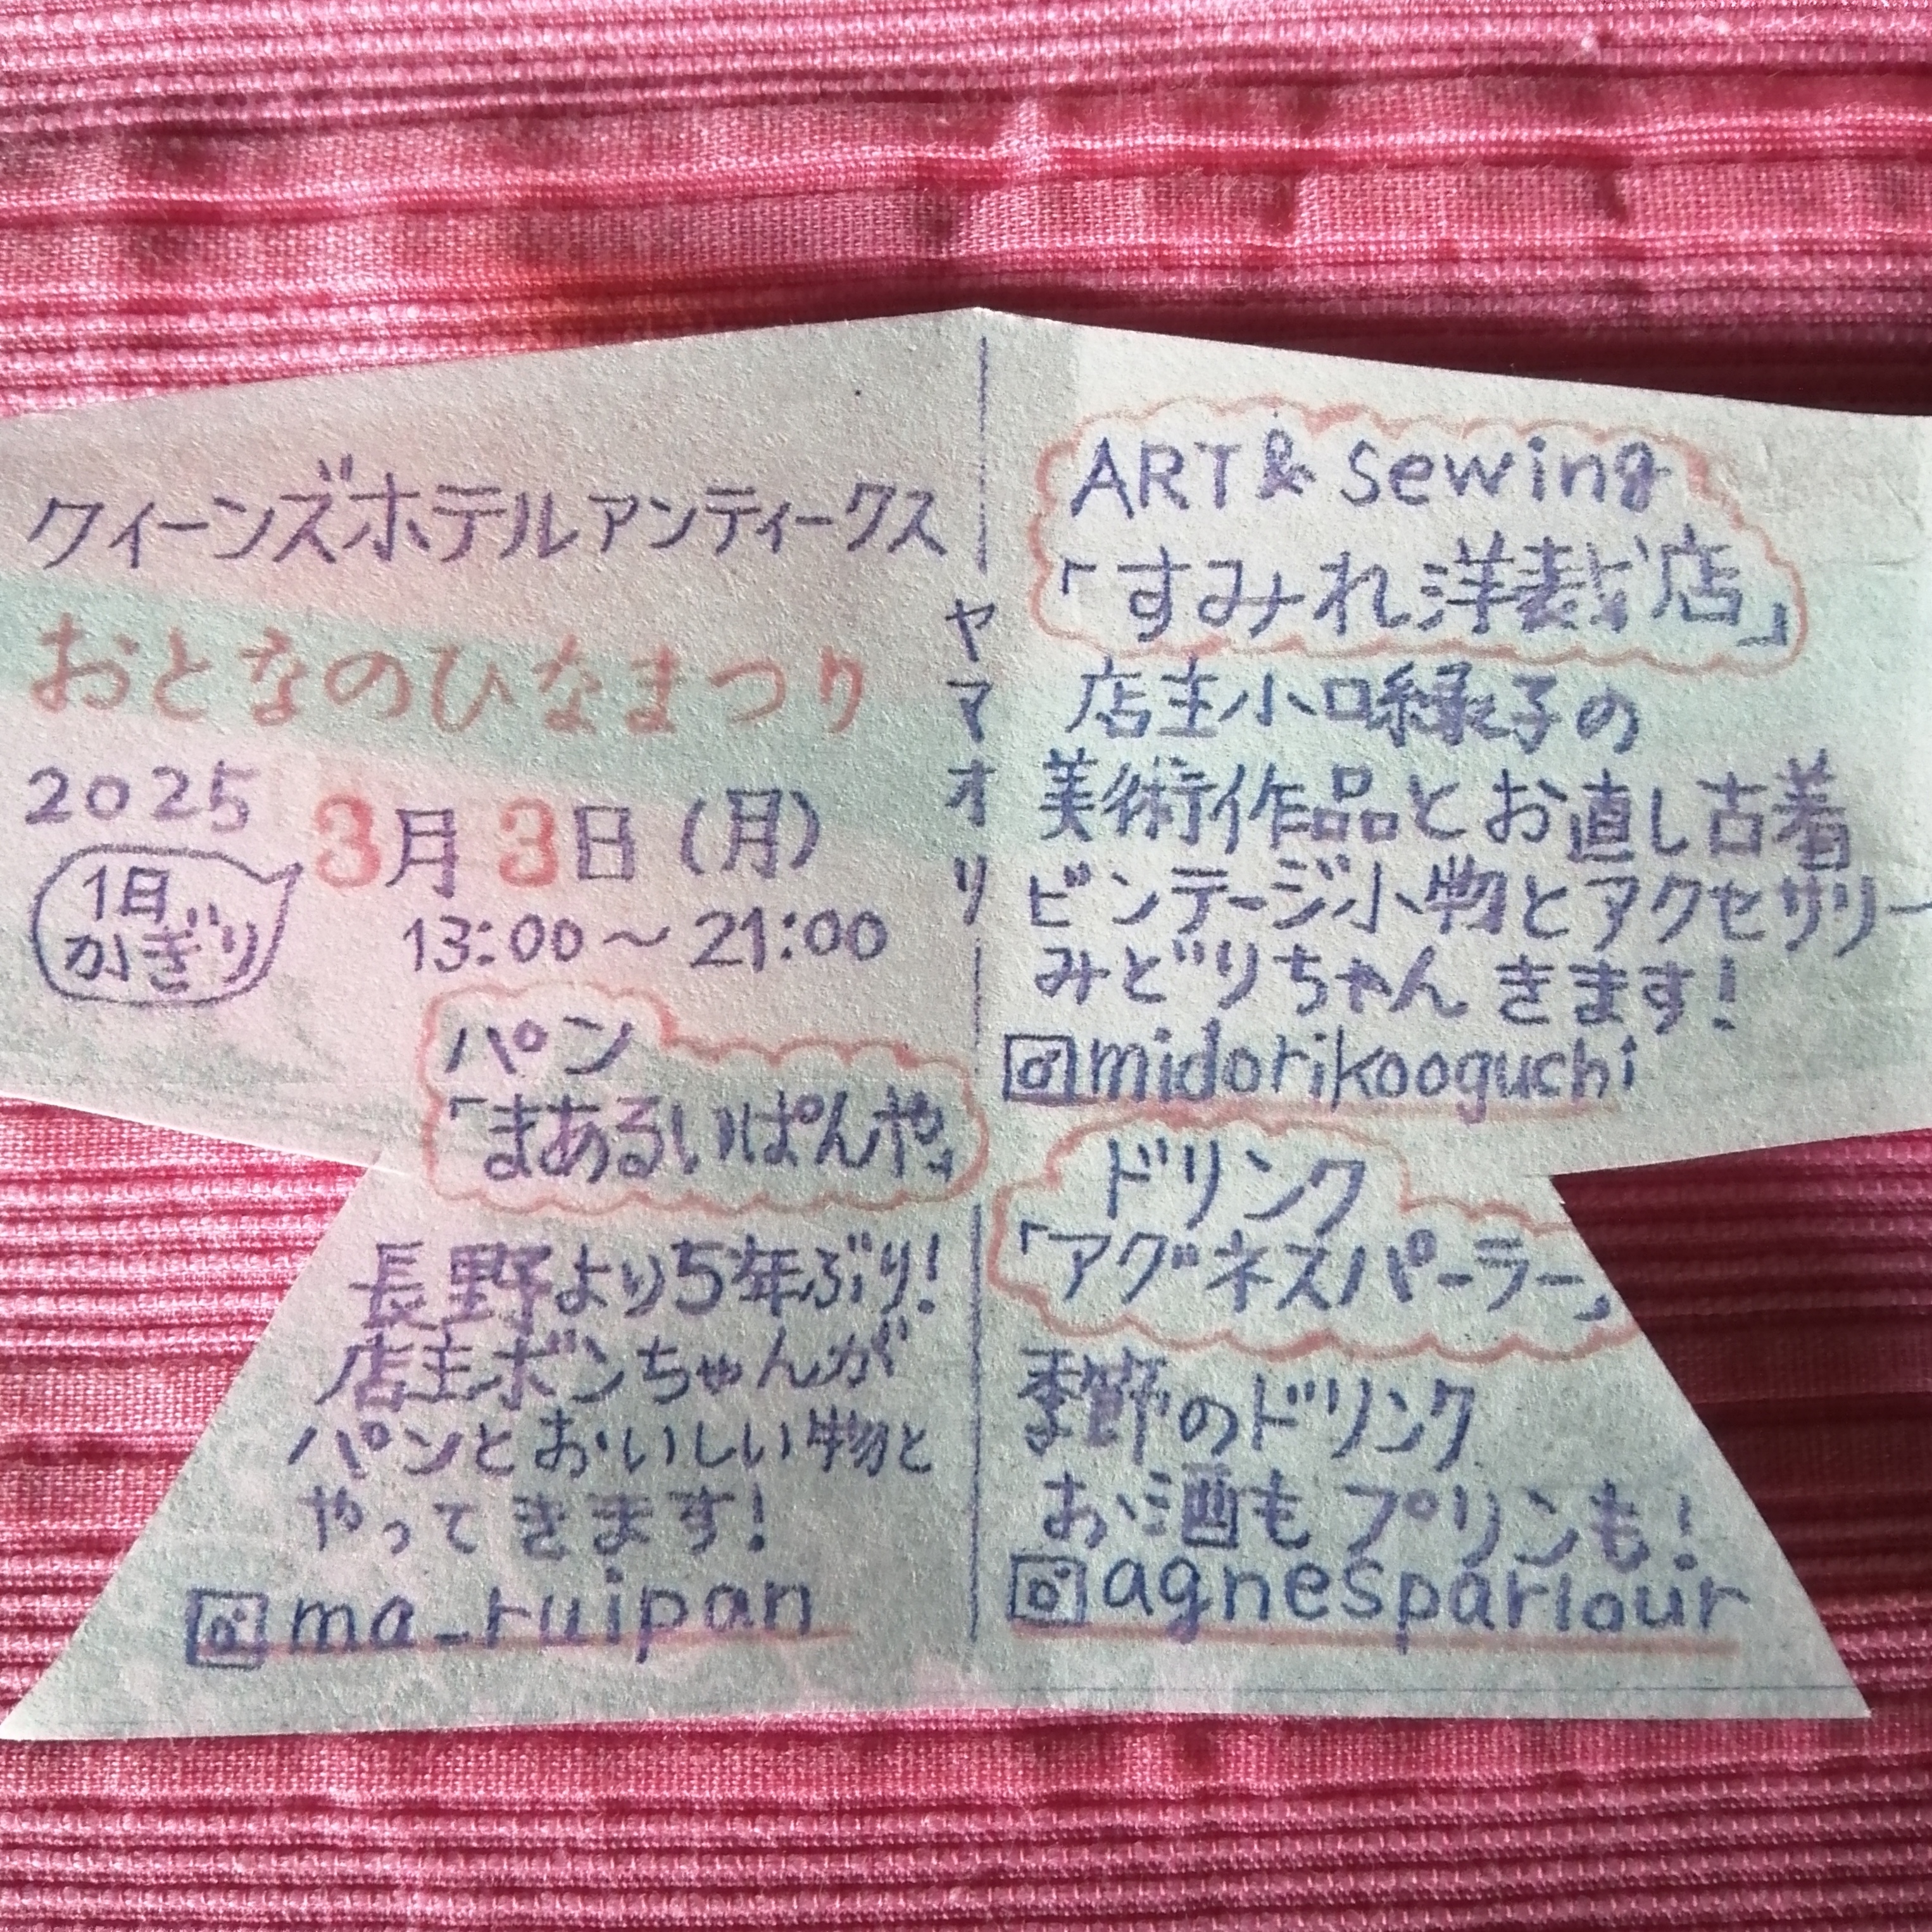 クィーンズホテルアンティークス
おとなのひなまつり
2025 3月3日(月)
1日
かぎり
13:00〜21:00
パン
「まあるいぱんや」
長野より5年ぶり!
店主ボンちゃんが
パンとおいしい物と
やってきます!
ma_ruipan
ヤマオリ
ART & Sewing
「すみれ洋裁店」
店主小口緑子の
美術作品とお直し古着
ビンテージ小物とアクセサリー
みどりちゃん きます!
midorikooguchi
ドリンク
「アグネスパーラー」
季節のドリンク
お酒もプリンも!
agnesparlour